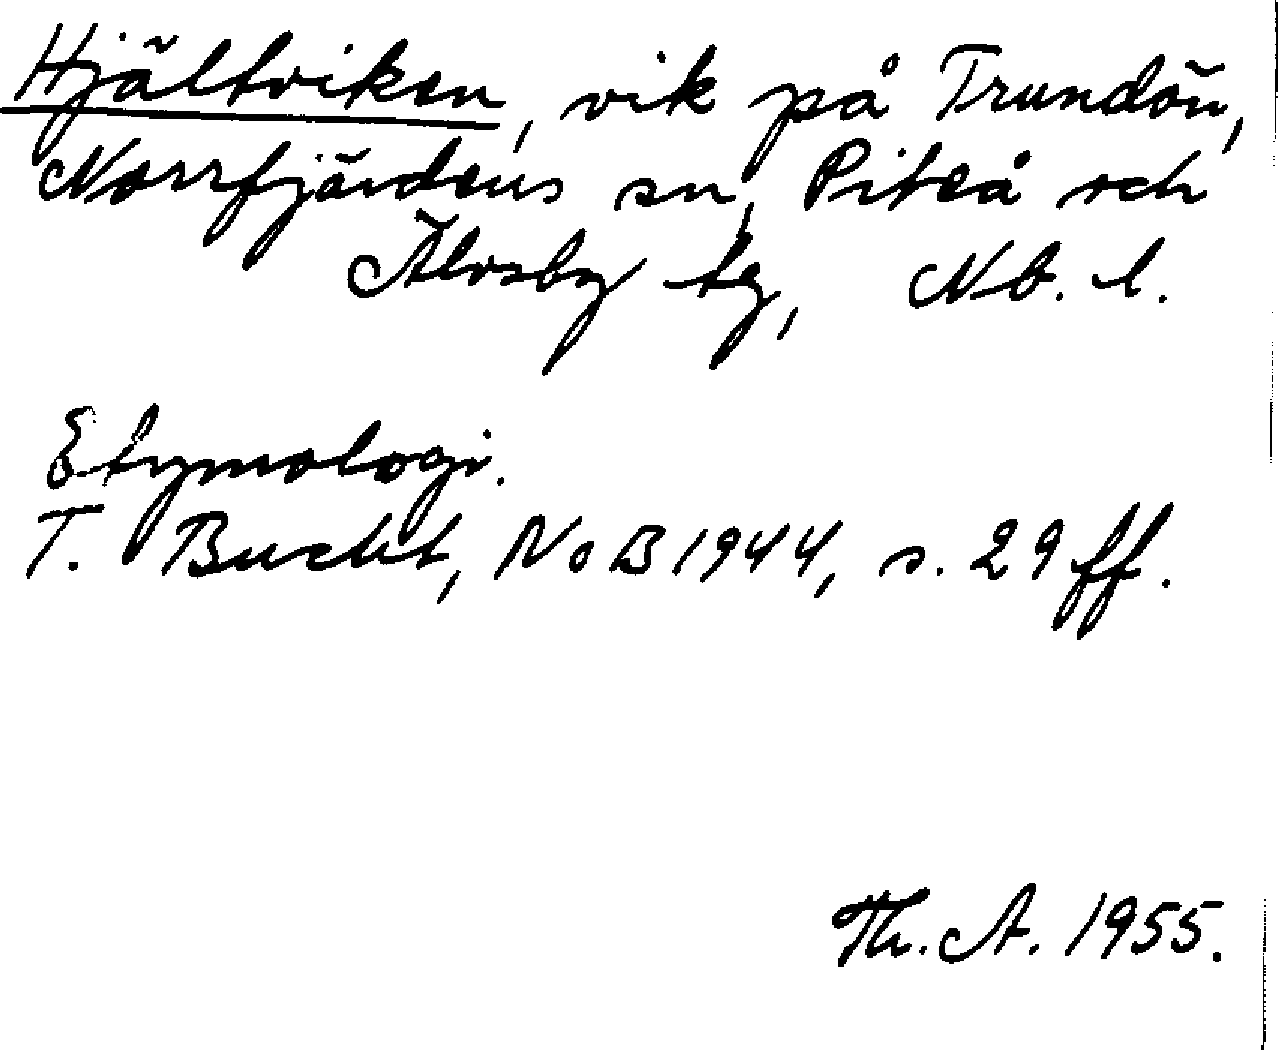 Hjältviken, vik på Trundön,
Norrfjärdens sn, Piteå och
Älvsby tg, Nb. l.
Etymologi.
T. Bucht, NoB 1944, s. 29 ff.
Th. A. 1955.